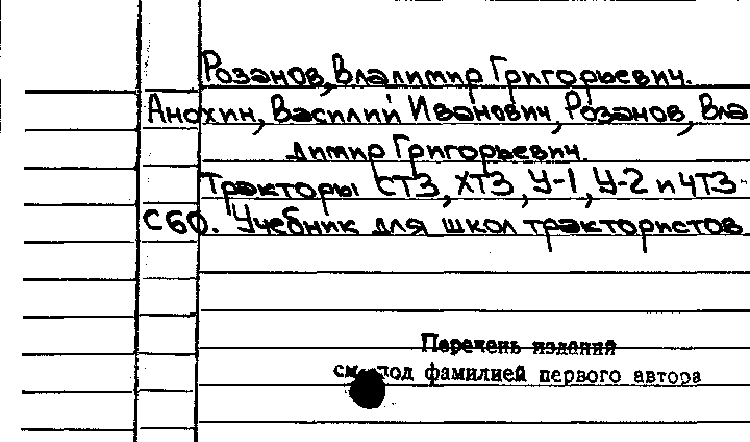 Розанов, Владимир Григорьевич.
Анохин, Василий Иванович, Розанов, Вла
димир Григорьевич.
Тракторы СТЗ, ХТЗ, У-1, У-2 и ЧТЗ-
С60. Учебник для школ трактористов
Перечень изданий
см. под фамилией первого автора